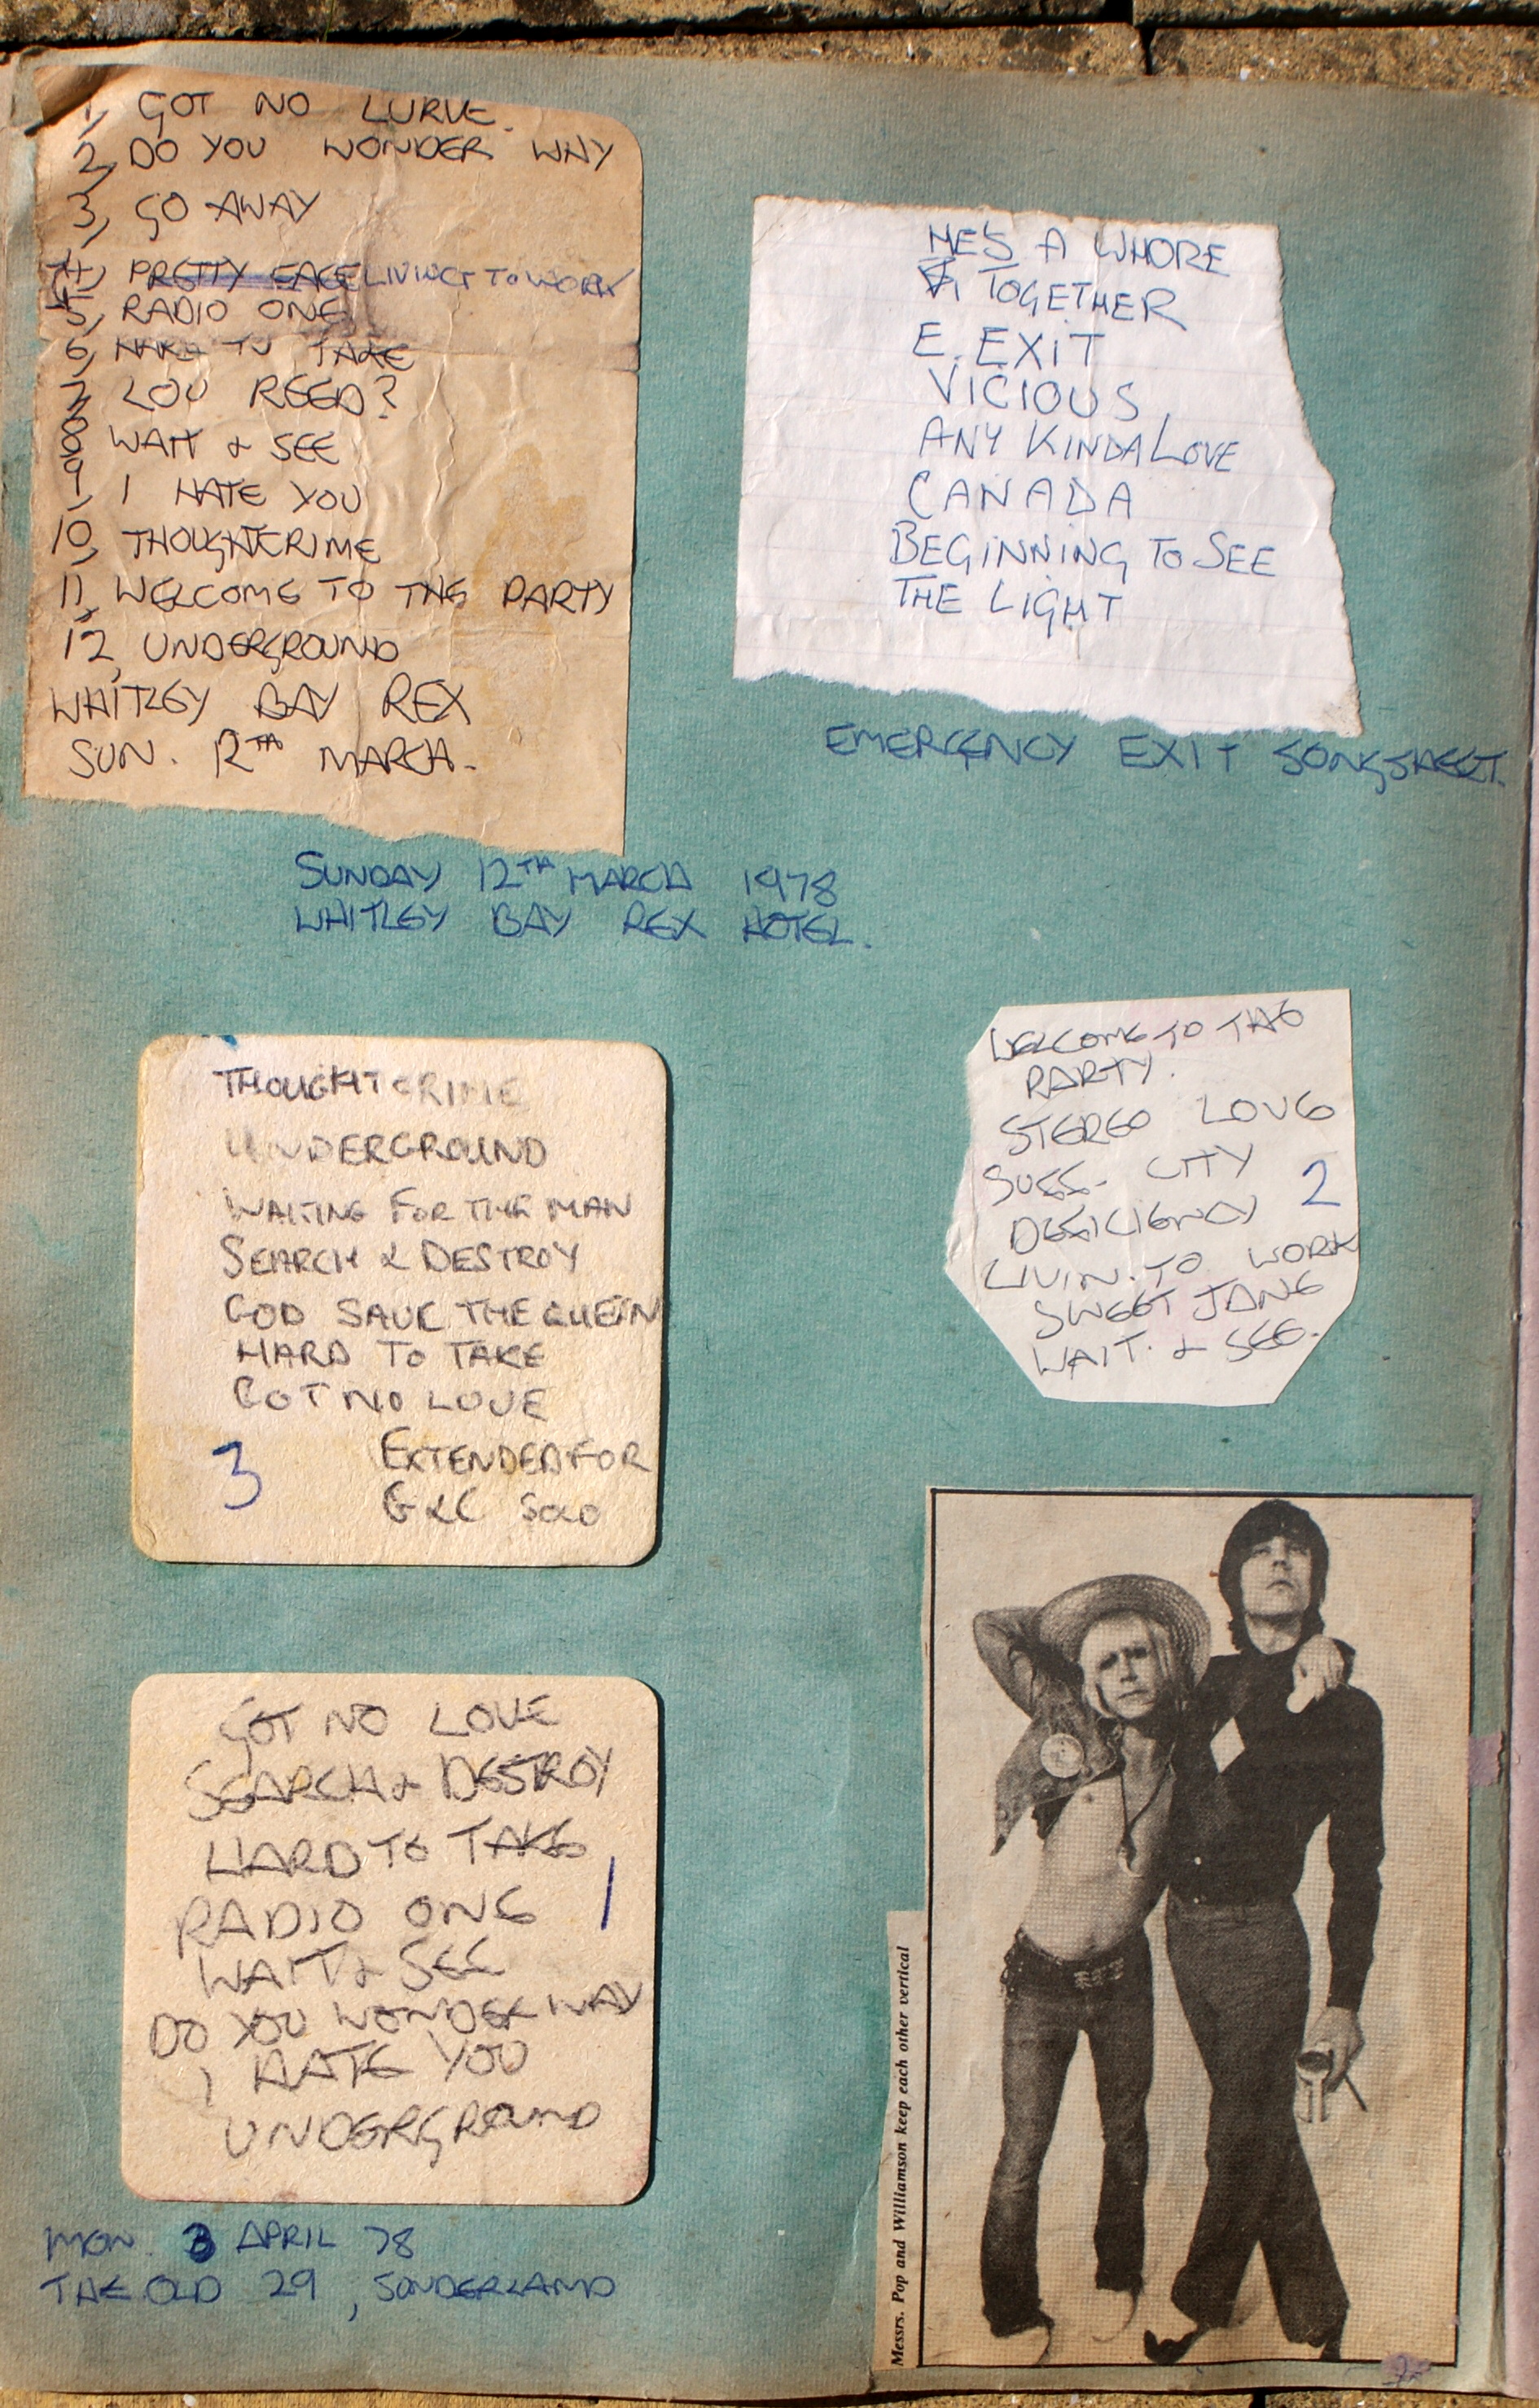 1, GOT NO LURVE.
2, DO YOU WONDER WHY
3, GO AWAY
4, PRETTY FACE LIVING TO WORK
5, RADIO ONE
6, HARD TO TAKE
7, LOU REED?
8, WAIT & SEE
9, I HATE YOU
10, THOUGHTCRIME
11, WELCOME TO THE PARTY
12, UNDERGROUND
WHITLEY BAY REX
SUN. 12TH MARCH.
HE'S A WHORE
TOGETHER
E. EXIT
VICIOUS
ANY KINDA LOVE
CANADA
BEGINNING TO SEE
THE LIGHT
EMERGENCY EXIT SONGSHEET.
SUNDAY 12TH MARCH 1978
WHITLEY BAY REX HOTEL.
THOUGHTCRIME
UNDERGROUND
WAITING FOR THE MAN
SEARCH & DESTROY
GOD SAVE THE QUEEN
HARD TO TAKE
GOT NO LOVE
3 EXTENDED FOR
G&C SOLO
WELCOME TO THE
PARTY.
STEREO LOVE
SUSS. CITY
2
DEFICIENCY
LIVIN. TO WORK
SWEET JANE
WAIT. & SEE.
GOT NO LOVE
SEARCH & DESTROY
HARD TO TAKE
RADIO ONE
1
WAIT & SEE
DO YOU WONDER WHY
I HATE YOU
UNDERGROUND
MON. 3 APRIL 78
THE OLD 29, SUNDERLAND
Messrs. Pop and Williamson keep each other vertical